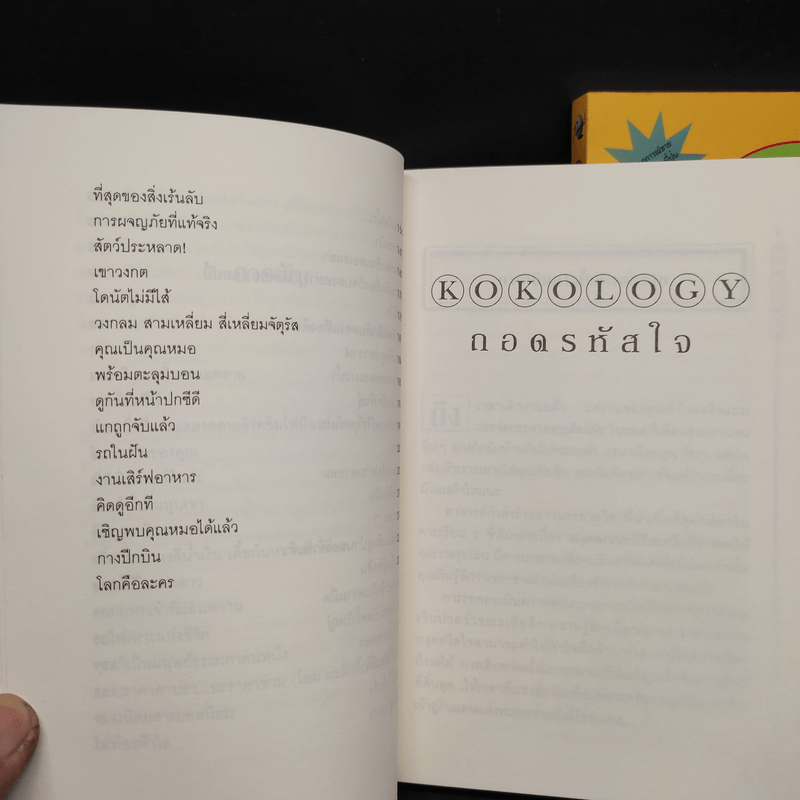 ที่สุดของสิ่งเร้นลับ
การผจญภัยที่แท้จริง
สัตว์ประหลาด!
เขาวงกต
โดนัตไม่มีไส้
วงกลม สามเหลี่ยม สี่เหลี่ยมจัตุรัส
คุณเป็นคุณหมอ
พร้อมตะลุมบอน
ดูกันที่หน้าปกซีดี
แกถูกจับแล้ว
รถในฝัน
งานเสิร์ฟอาหาร
คิดดูอีกที
เชิญพบคุณหมอได้แล้ว
กางปีกบิน
โลกคือละคร
KOKOLOGY
ถอดรหัสใจ